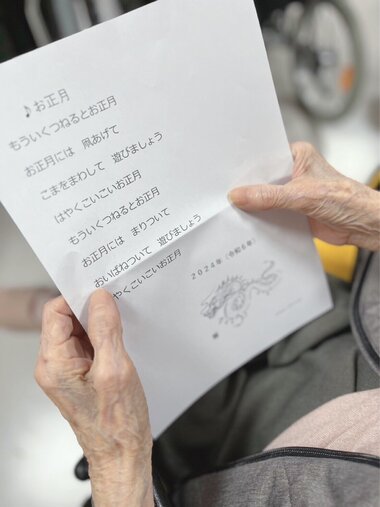 ♪お正月
もういくつねるとお正月
お正月には 凧あげて
こまをまわして 遊びましょう
はやくこいこいお正月
もういくつねるとお正月
お正月には まりついて
おいばねついて 遊びましょう
やくこいこいお正月
2024年(令和6年)